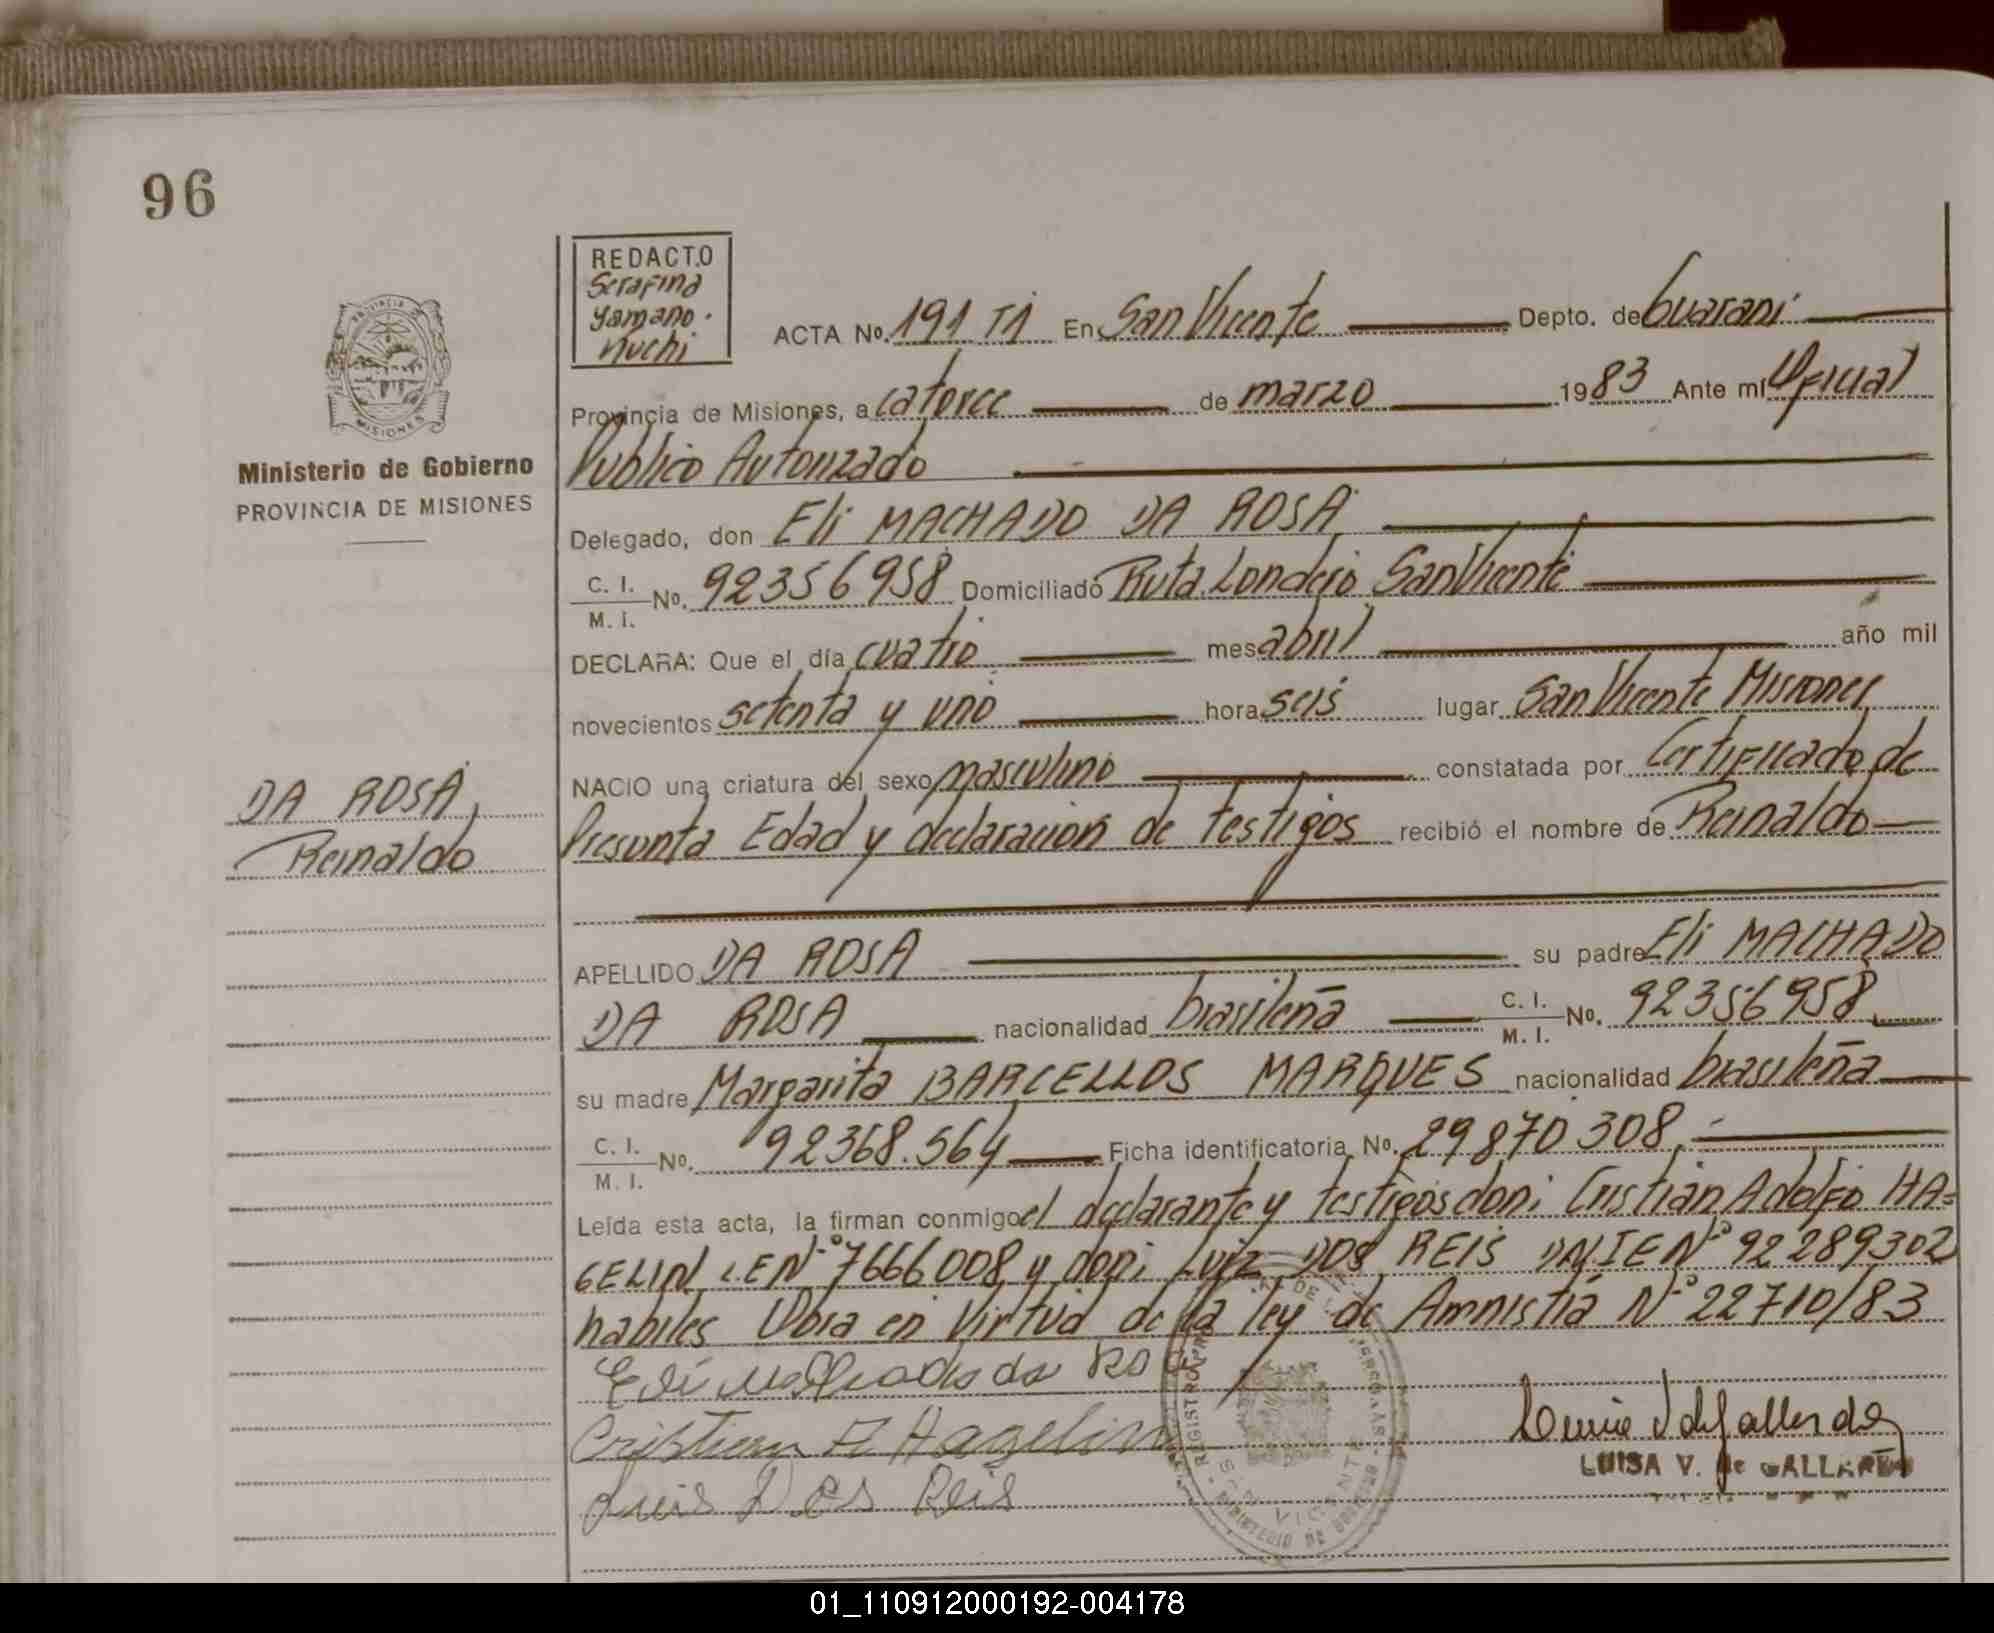 96
REDACTO
Serafina
Yamano.
nuchi
ACTA No. 191 T1 En San Vicente Depto. de Guarani
Provincia de Misiones, a catorce de marzo 1983 Ante mí Oficial
Publico Autorizado
Ministerio de Gobierno
PROVINCIA DE MISIONES
Delegado, don Eli MACHADO DA ROSA
C. I. / M. I. No. 92356958 Domiciliado Ruta Londero San Vicente
DECLARA: Que el día cuatro mes abril año mil
novecientos setenta y uno hora seis lugar San Vicente Misiones
NACIO una criatura del sexo masculino constatada por Certificado de
DA ROSA,
Reinaldo
Presunta Edad y declaracion de testigos recibió el nombre de Reinaldo
APELLIDO DA ROSA su padre Eli MACHADO
DA ROSA nacionalidad brasileña C. I. / M. I. No. 92356958
su madre Margarita BARCELLOS MARQUES nacionalidad brasileña
C. I. / M. I. No. 92368.564 Ficha identificatoria No. 29870308.-
Leída esta acta, la firman conmigo el declarante y testigos don: Cristian Adolfo HA=
GELIN LEN° 7666008 y don: Luiz DOS REIS DNIE N° 92289302
habiles Obra en Virtud de la ley de Amnistia N° 22710/83
Cristian A Hagelin
Luis Dos Reis
LUISA V. de GALLARDO
01_110912000192-004178